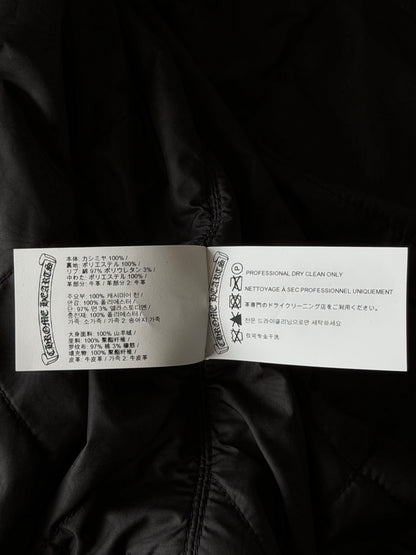 CHROME HEARTS
本体: カシミヤ 100% /
裏地: ポリエステル 100% /
リブ: 綿 97% ポリウレタン 3% /
中わた: ポリエステル 100% /
革部分: 牛革 / 革部分 2: 牛革
주요부: 100% 캐시미어 천 /
안감: 100% 폴리에스터 /
단: 97% 면 3% 엘라스토디엔 /
충전재: 100% 폴리에스터 /
가죽: 소가죽 / 가죽 2: 송아지 가죽
大身面料: 100% 山羊绒 /
里料: 100% 聚酯纤维 /
罗纹布: 97% 棉 3% 橡筋 /
填充物: 100% 聚酯纤维 /
皮革: 牛皮革 / 가죽 2: 牛皮革
PROFESSIONAL DRY CLEAN ONLY
NETTOYAGE À SEC PROFESSIONNEL UNIQUEMENT
革専門のドライクリーニング店をご利用ください。
전문 드라이클리닝으로만 세탁하세요
仅可专业干洗